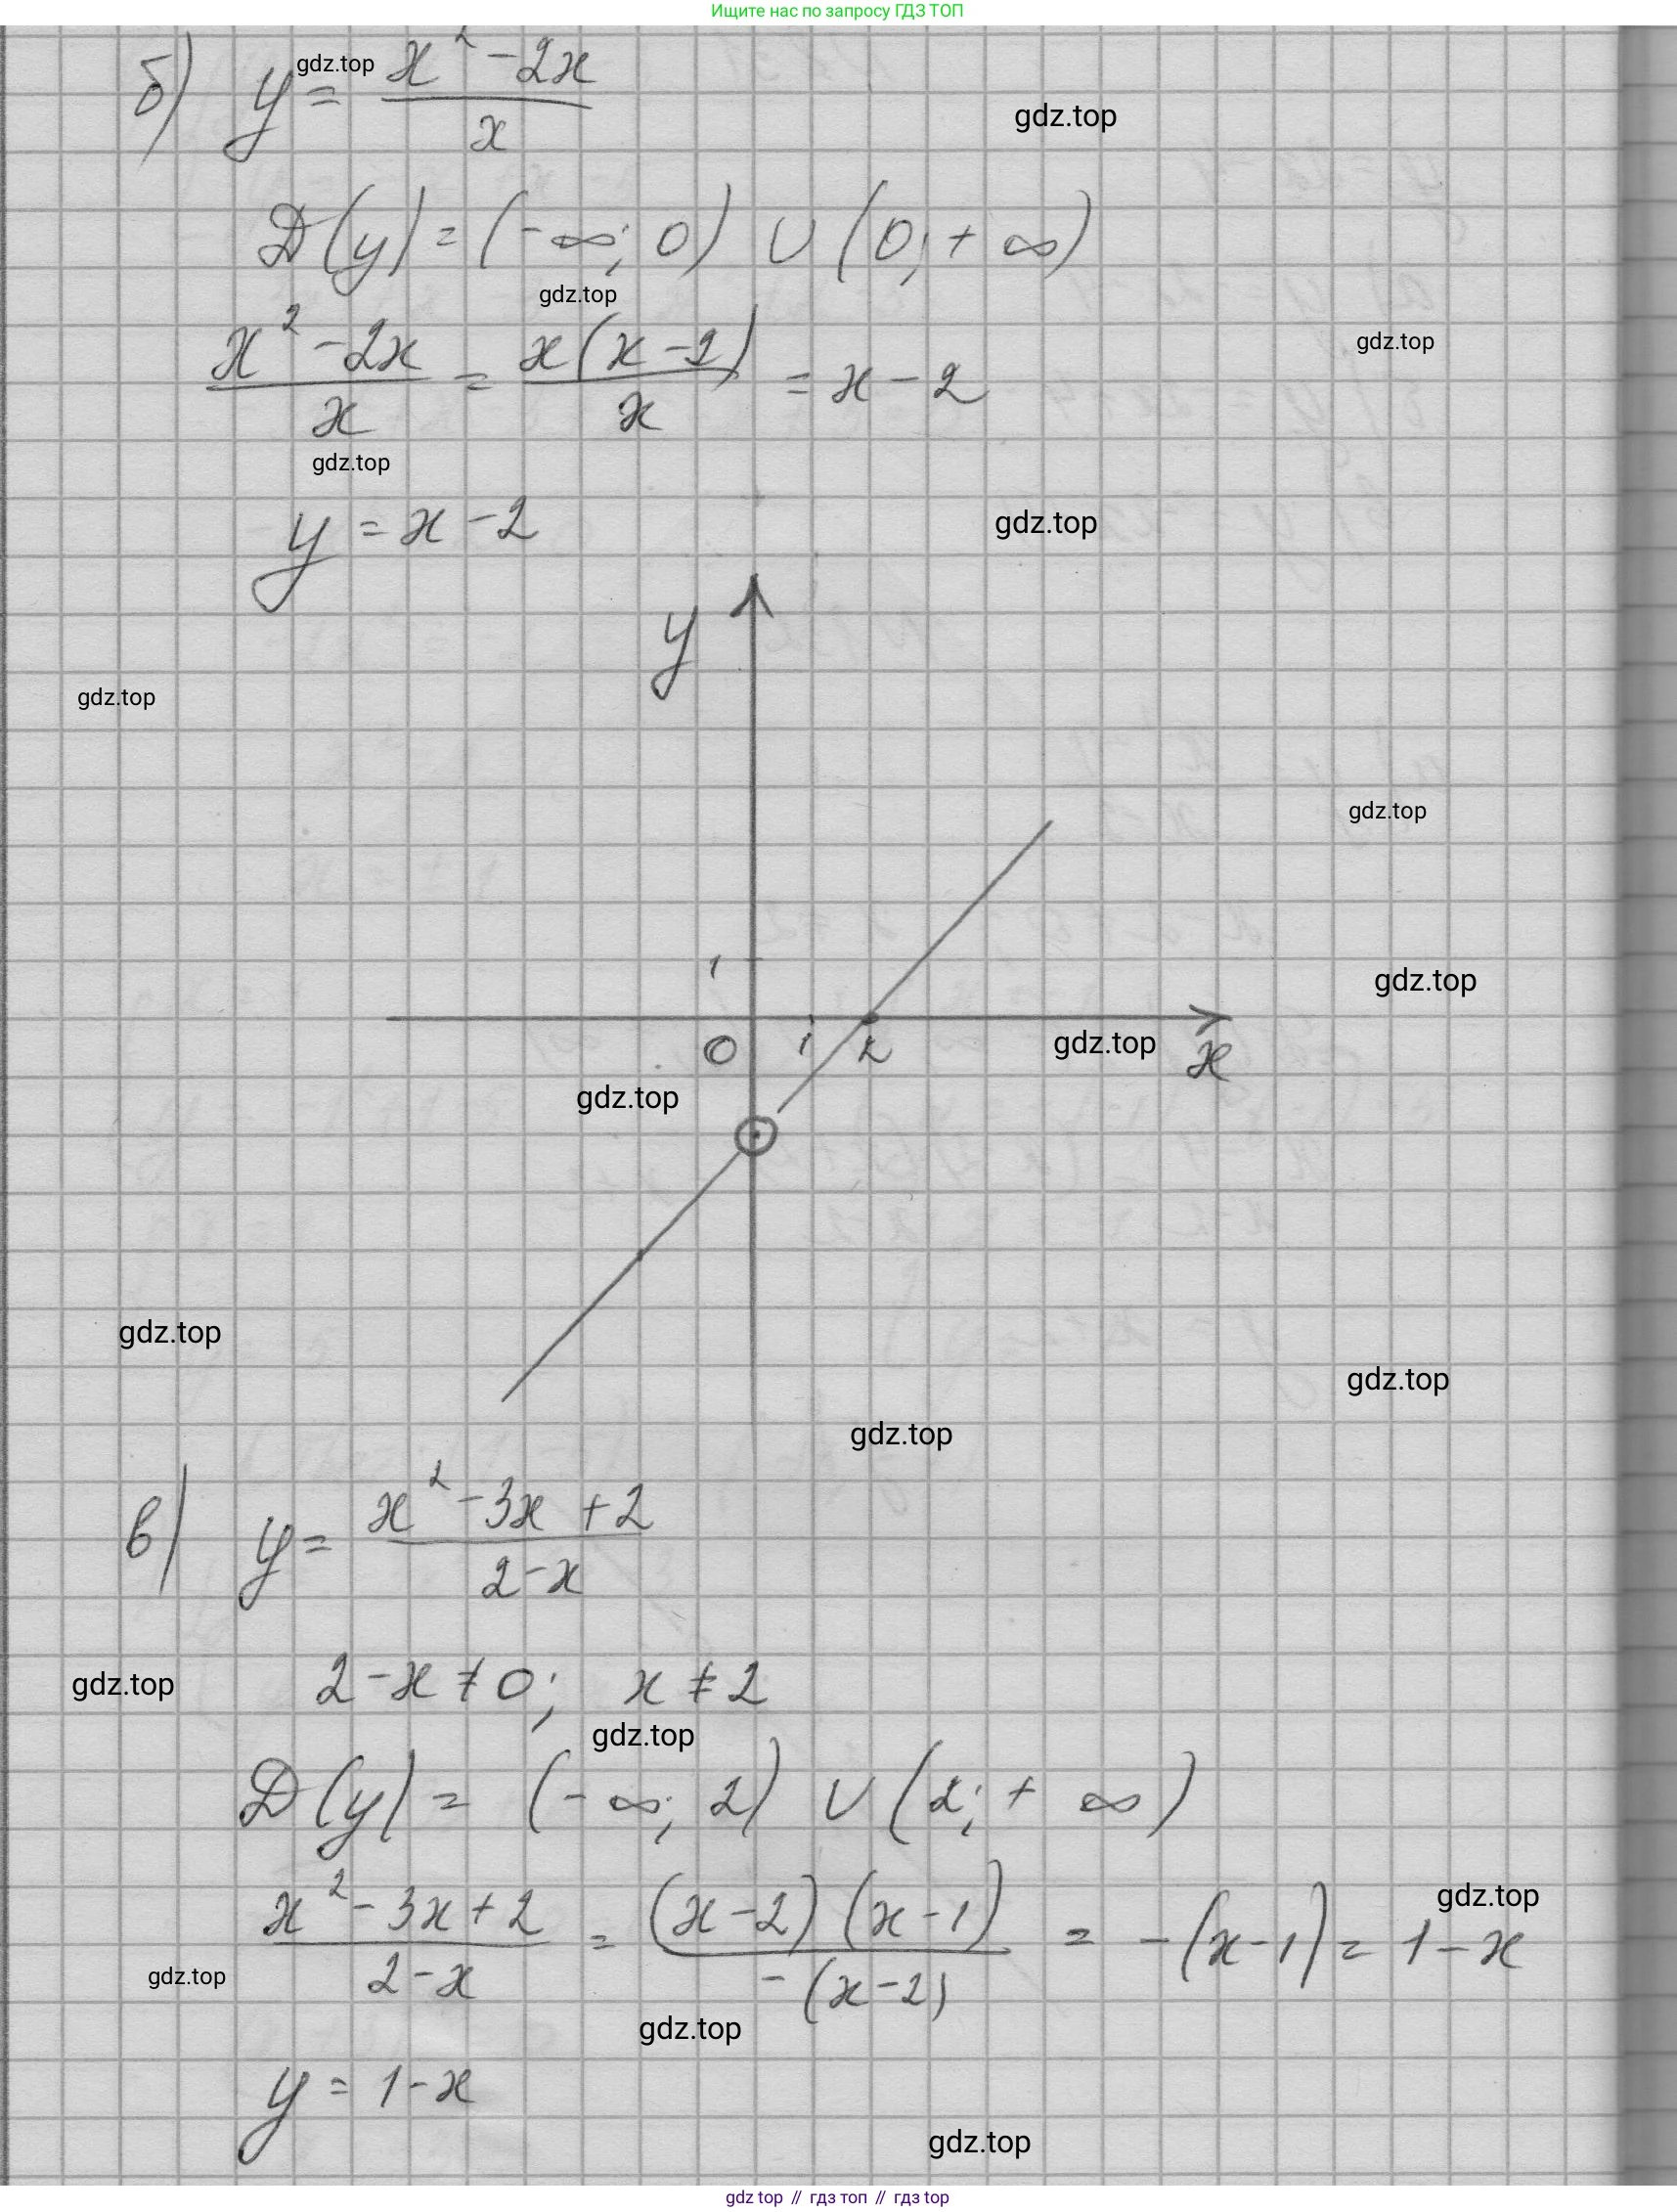 Ищите нас по запросу ГДЗ ТОП
б) y = (x² - 2x)/x
gdz.top
gdz.top
D(y) = (-∞; 0) ∪ (0; +∞)
gdz.top
(x² - 2x)/x = x(x - 2)/x = x - 2
gdz.top
gdz.top
y = x - 2
gdz.top
y
gdz.top
gdz.top
1
gdz.top
0 1 2 x
gdz.top
gdz.top
gdz.top
gdz.top
gdz.top
в) y = (x² - 3x + 2)/(2 - x)
2 - x ≠ 0; x ≠ 2
gdz.top
gdz.top
D(y) = (-∞; 2) ∪ (2; +∞)
gdz.top
(x² - 3x + 2)/(2 - x) = (x - 2)(x - 1)/(-(x - 2)) = -(x - 1) = 1 - x
gdz.top
gdz.top
y = 1 - x
gdz.top
gdz top // гдз топ // гдз top